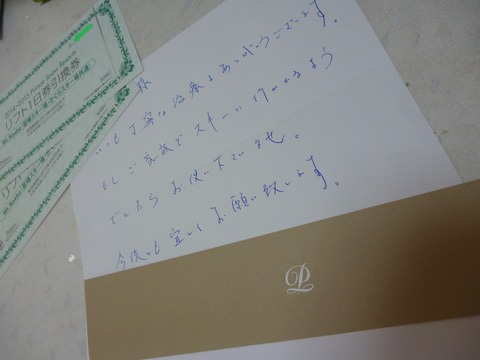 2016-2017 Prince Snow Resorts
リフト1日券引換券
様
いつも丁寧な治療をありがとうございます。
もしご家族でスキーに行かれるよう
でしたらお使い下さいませ。
今後とも宜しくお願い致します。
リフト
P